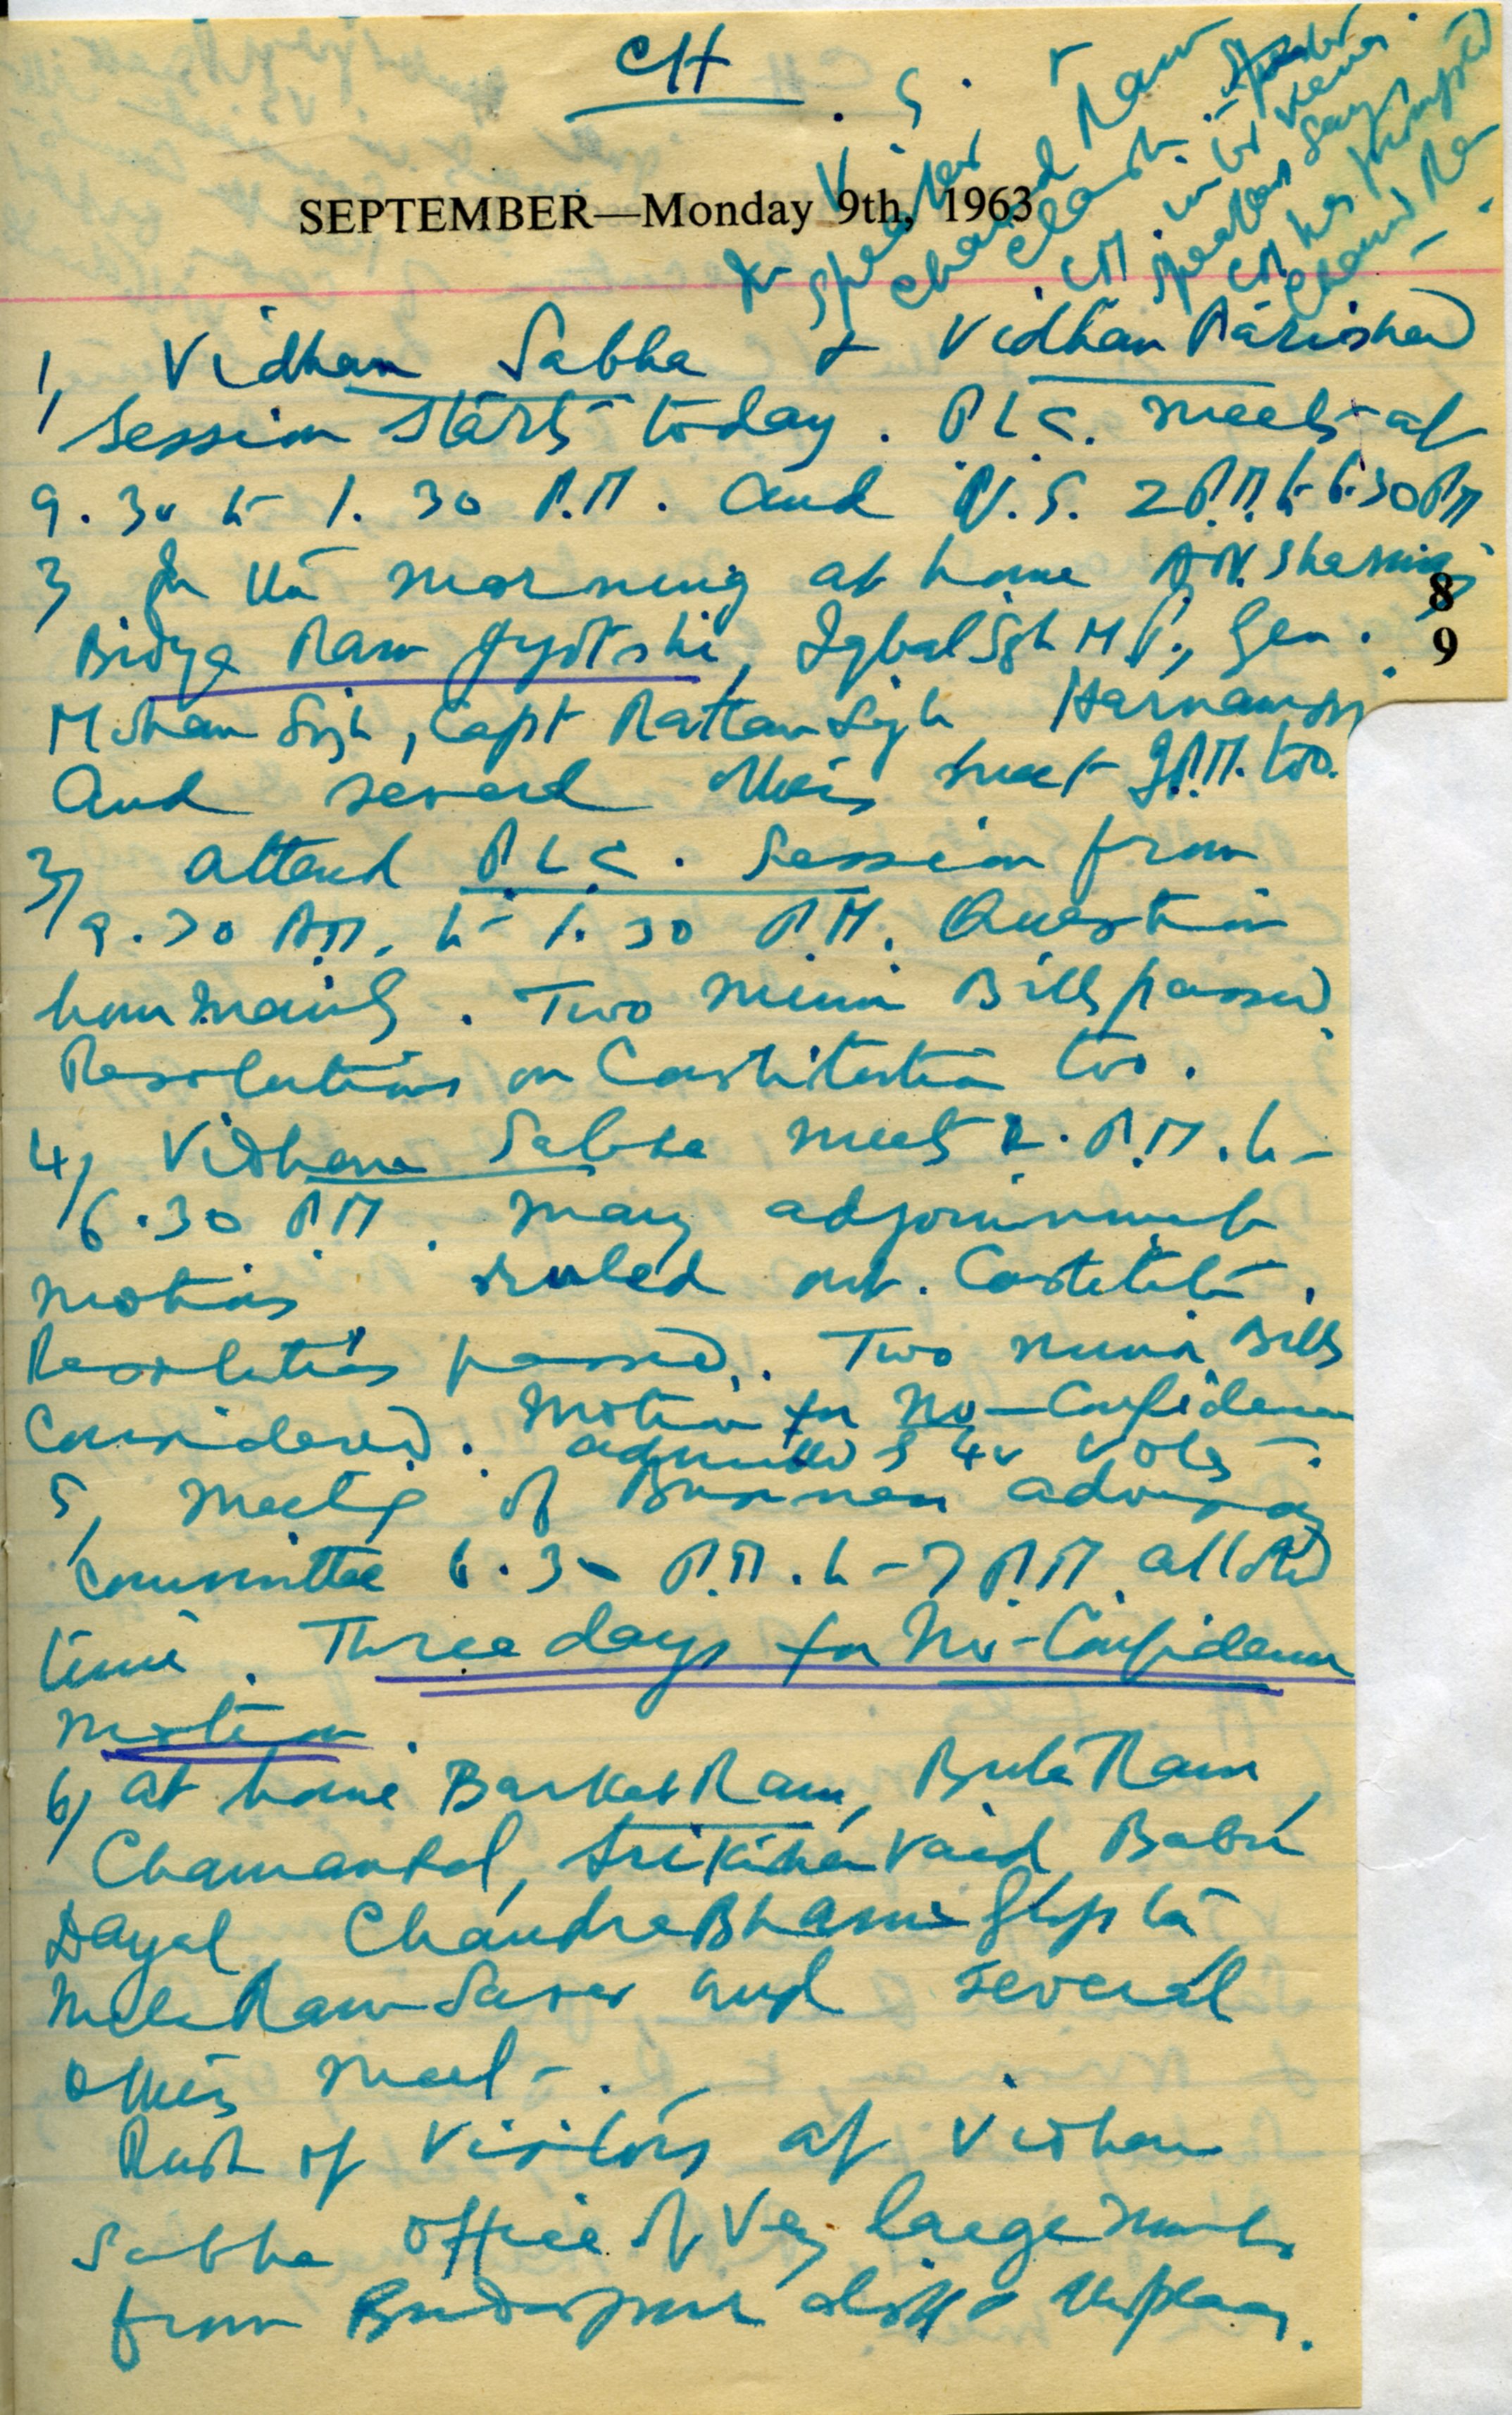 CH
SEPTEMBER—Monday 9th, 1963
In V.S.
Speaker &
Chand Ram
clash.
CM
Speaker says
CM has
Chand Ram
1, Vidhan Sabha & Vidhan Parishad
Session starts today. P.L.C. meets at
9.30 to 1.30 P.M. and V.S. 2 P.M. to 6.30 PM
8
9
2, In the morning at home A.N. Sharma
Bidya Ram Jyotshi, Iqbal Sgh M.P., Gen.
Mohan Sigh, Capt Rattan Sigh Harnam
and several others meet too.
3, attend P.L.C. Session from
9.30 A.M. to 1.30 P.M. Question
hour mainly. Two minor Bills passed
Resolutions on Constitution too.
4, Vidhan Sabha meets 2. P.M. to
6.30 PM. many adjournment
motions ruled out. Constitution
Resolution passed. Two minor Bills
Considered. Motion for No-Confidence
admitted votes.
5, Meeting of Business advisory
Committee 6.30 P.M. to 7 P.M. alloted
time. Three days for No-Confidence
motion.
6, at home Barkat Ram, Ram,
Chamanlal, Srikishan Vaid, Babu
Dayal, Chandra Bhan Gupta
Ram and several
others meet.
Rush of visitors at Vidhan
Sabha office of very large number
from distt &